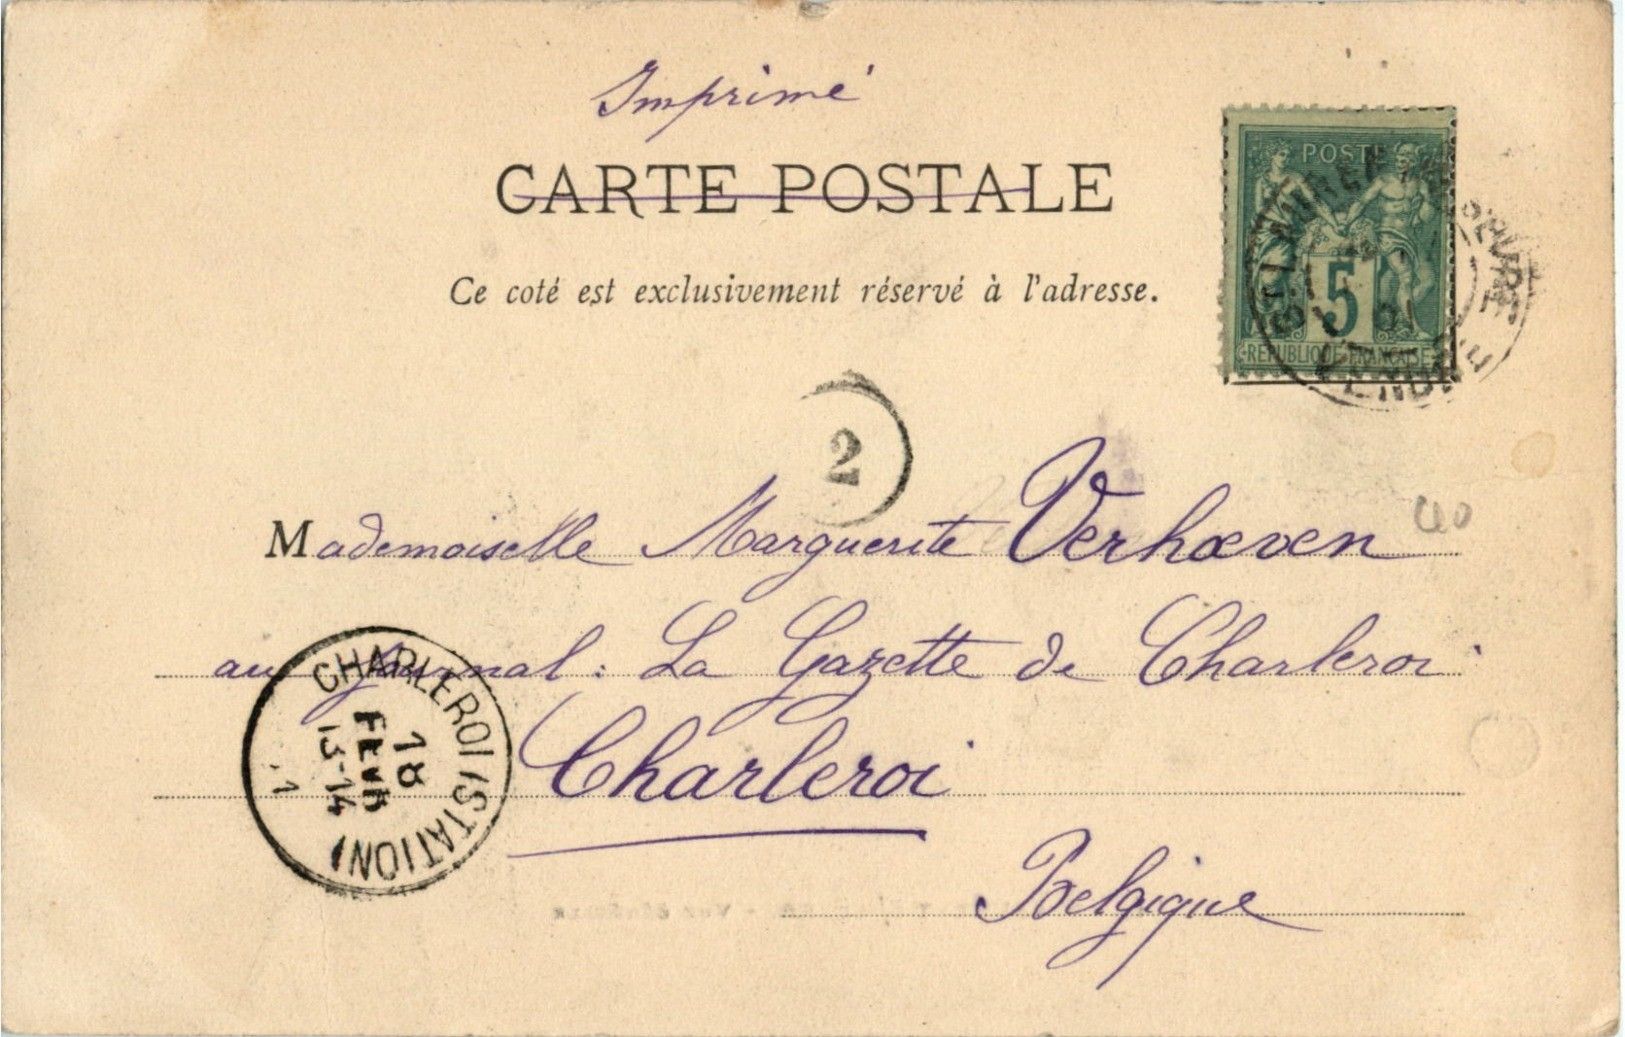 Imprimé
CARTE POSTALE
Ce coté est exclusivement réservé à l'adresse.
POSTE
5
REPUBLIQUE FRANCAISE
ST LAUREN SEVRE
VENDÉE
2
Mademoiselle Marguerite Verhœven
au journal : La Gazette de Charleroi
Charleroi
Belgique
CHARLEROI (STATION)
18
FEVR
13-14